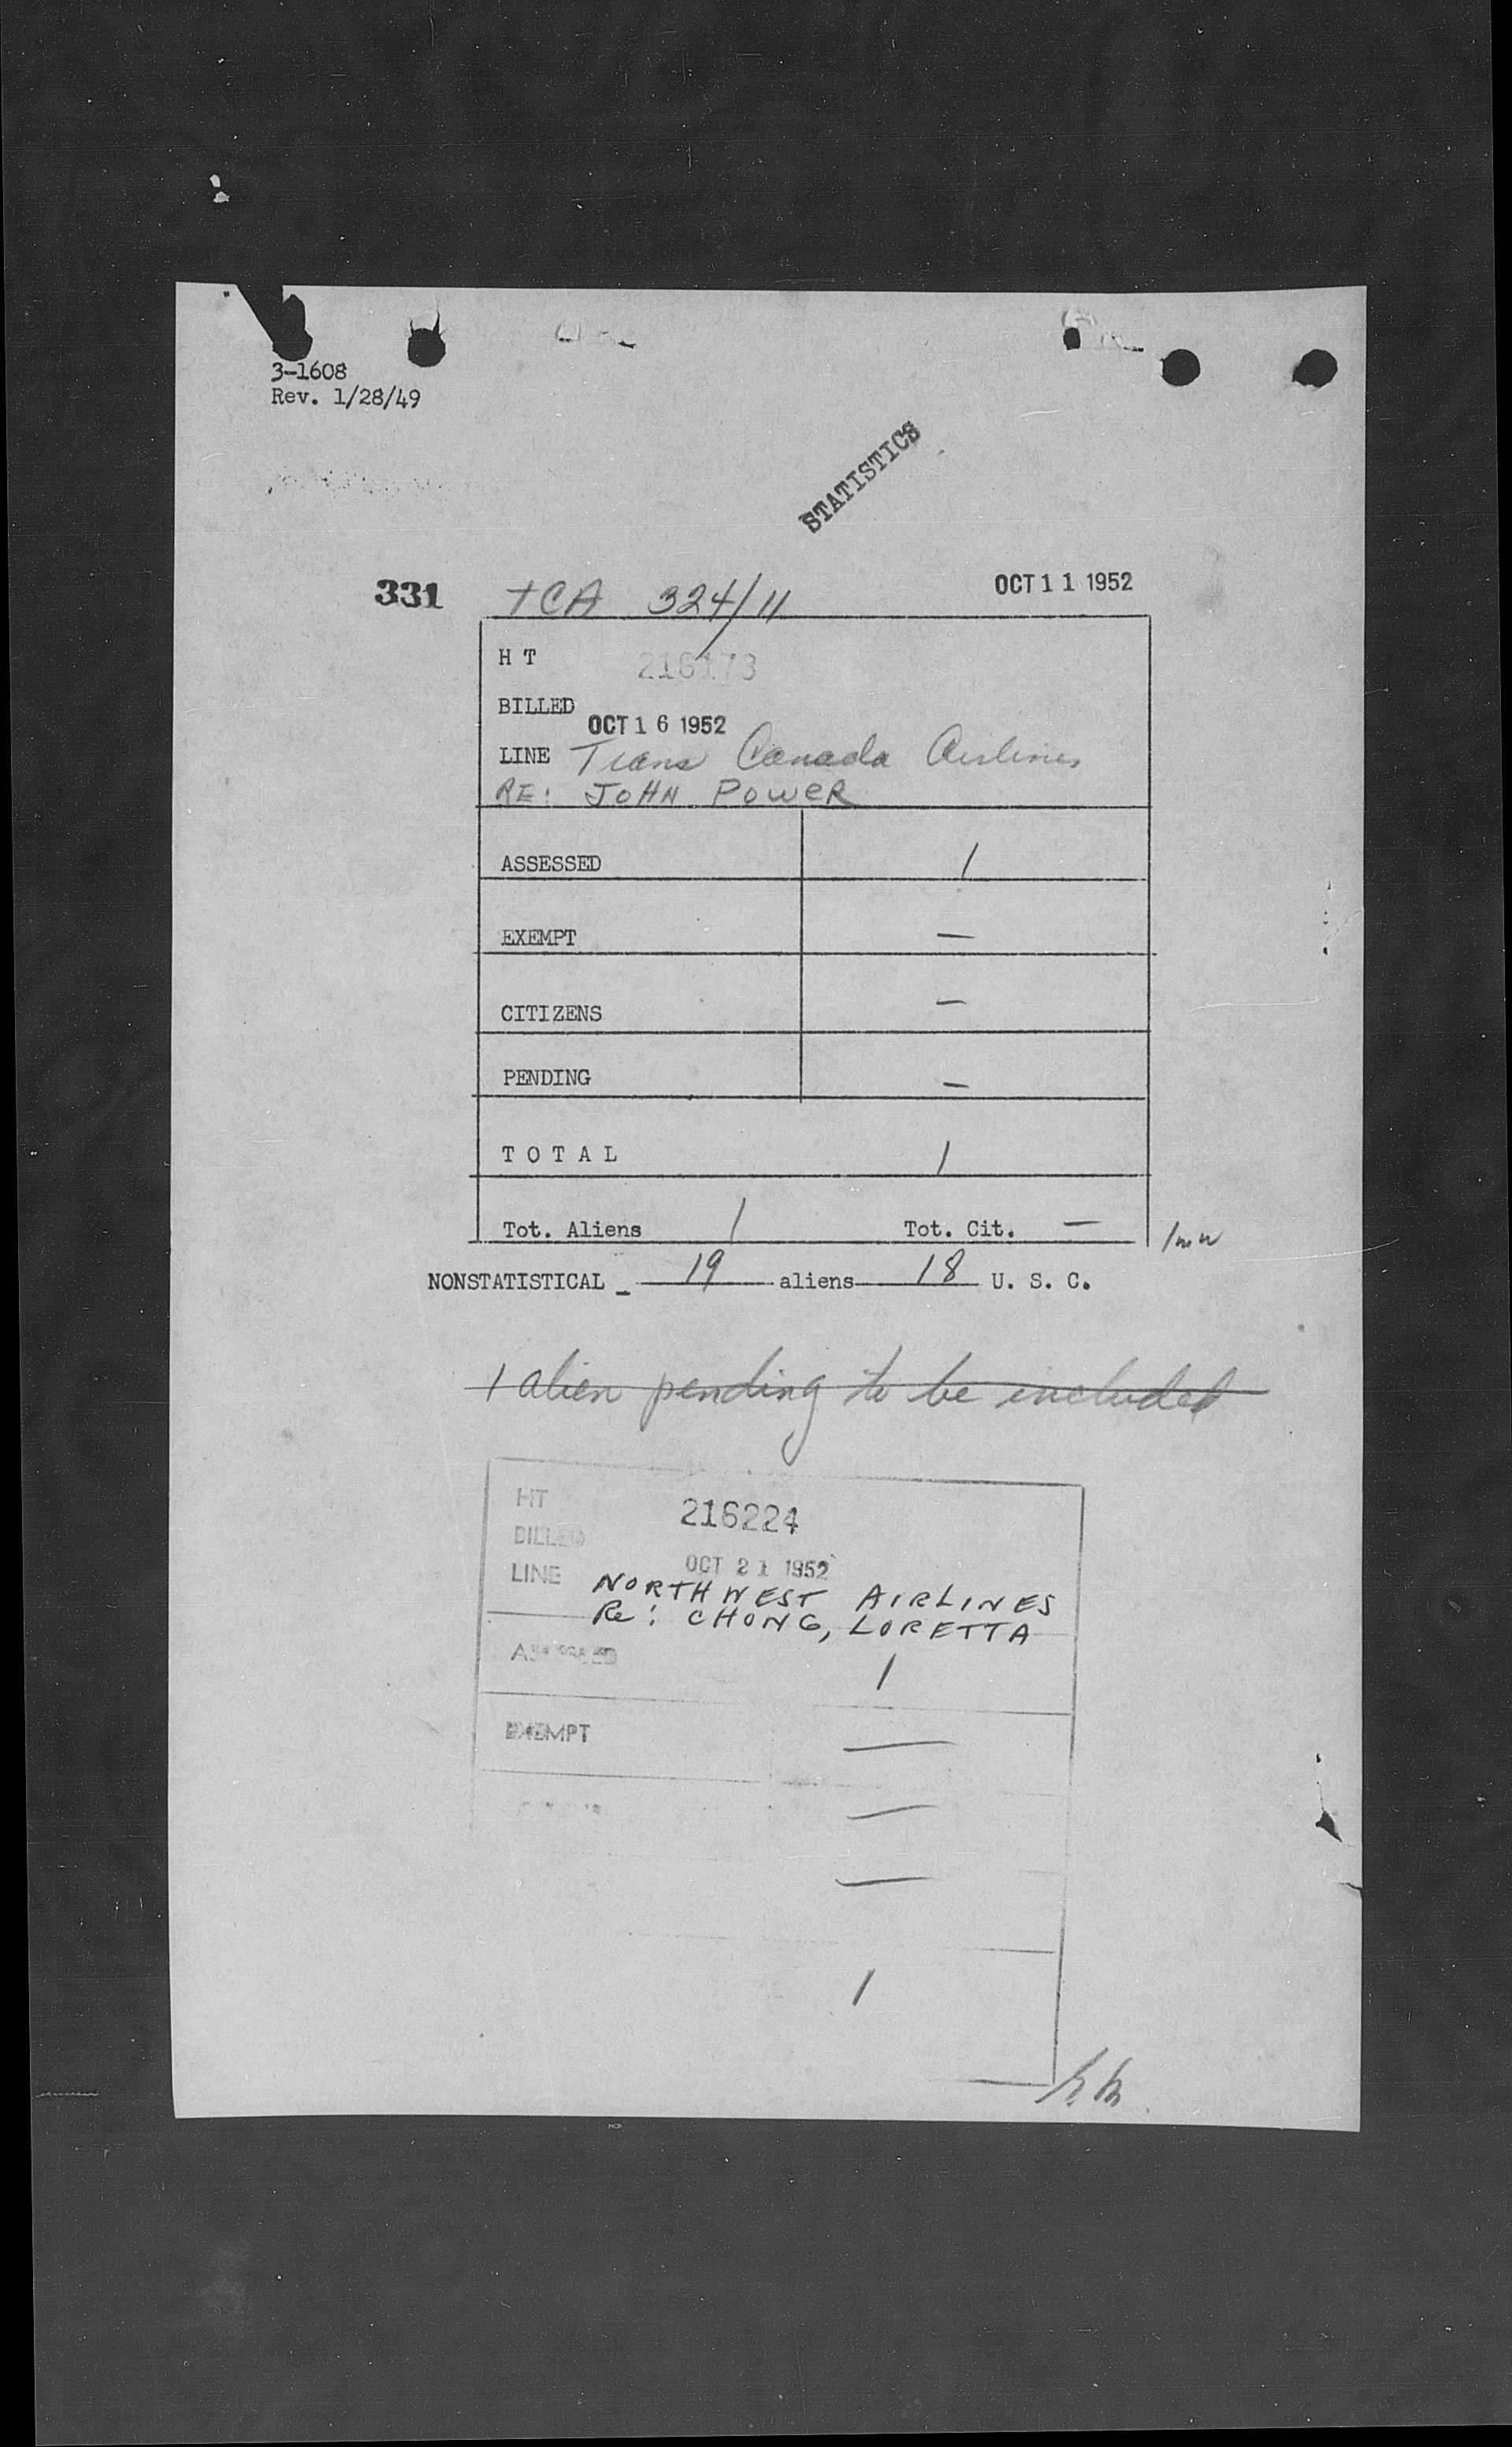 3-1608
Rev. 1/28/49
STATISTICS
331 TCA 324/11 OCT 11 1952
H T 216173
BILLED
OCT 16 1952
LINE Trans Canada Airlines
RE: JOHN POWER
ASSESSED 1
EXEMPT —
CITIZENS —
PENDING —
T O T A L 1
Tot. Aliens 1 Tot. Cit. —
NONSTATISTICAL _ 19 aliens 18 U. S. C.
1 alien pending to be included
HT 216224
BILLED
OCT 21 1952
LINE NORTHWEST AIRLINES
Re: CHONG, LORETTA
ASSESSED 1
EXEMPT —
—
—
1